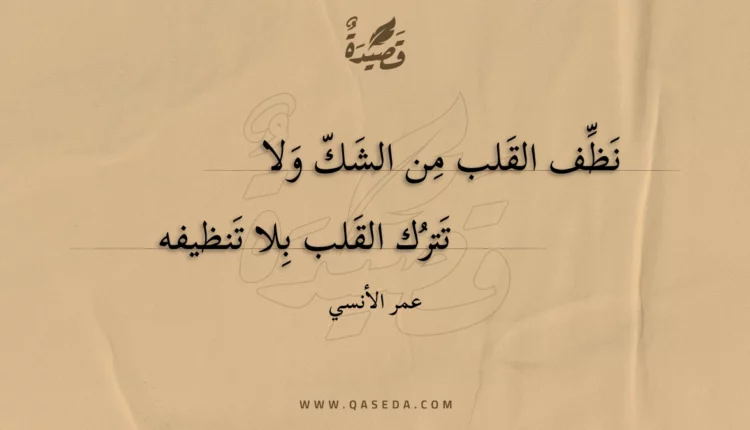 قَصِيدَةٌ
نَظِّف القَلب مِن الشَكّ وَلا
تَترُك القَلب بِلا تَنظيفه
عمر الأنسي
WWW.QASEDA.COM